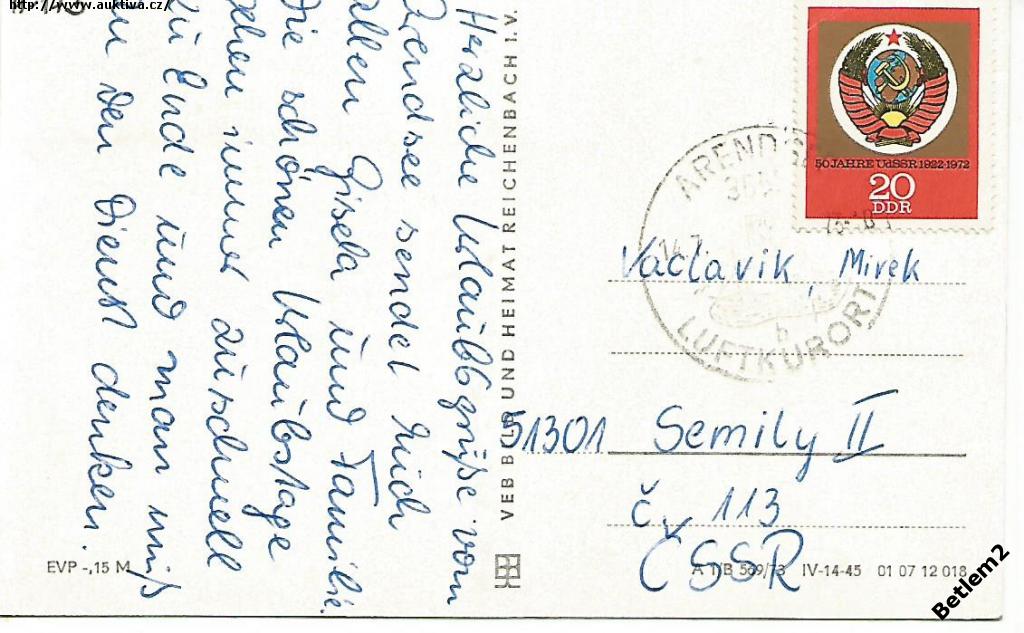 http://www.auktiva.cz/
Herzliche Urlaubsgrüße vom
Arendsee sendet Euch
allen Gisela und Familie.
Die schönen Urlaubstage
gehen immer zu schnell
zu Ende und man muß
an den Dienst denken.
EVP -,15 M
VEB BILD UND HEIMAT REICHENBACH I. V.
50 JAHRE UdSSR 1922-1972
20
DDR
AREND
LUFTKURORT
b
Vaclavik, Mirek
51301 Semily II
č. 113
ČSSR
A 1/B 569/73 IV-14-45 01 07 12 018
Betlem2